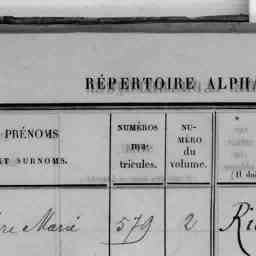 RÉPERTOIRE ALPH
PRÉNOMS
ET SURNOMS.
NUMÉROS
ma-
tricules.
NU-
MÉRO
du
volume.
Marie 579 2